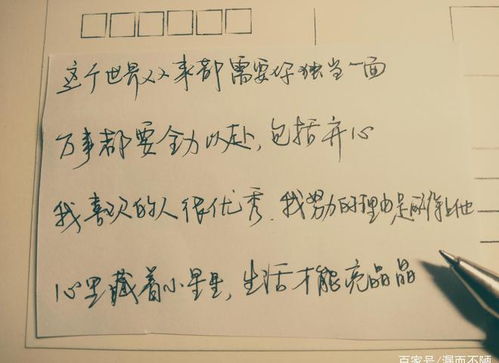 这个世界从来都需要你独当一面
万事都要全力以赴,包括开心
我喜欢的人很优秀,我努力的理由是配得上他
心里藏着小星星,生活才能亮晶晶
百家号/漏而不陋